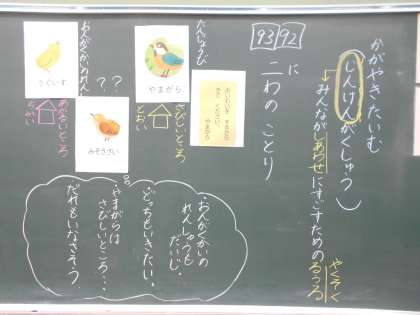 かがやきたいむ
(じんけんがくしゅう)
→みんながしあわせにすごすための
やくそく
るうる
93 92
に
二わの ことり
おいわいを するから
きて ください。
やまがら
たんじょうび
やまがら
さびしいところ
とおい
おんがくかいのれん
??
うぐいす
あかるいところ
ちかい
みそさざい
・おんがくかいの
れんしゅうも
だいじ。
・どっちもいきたい。
・やまがらは
さびしいところ・・・
だれもいなさそう